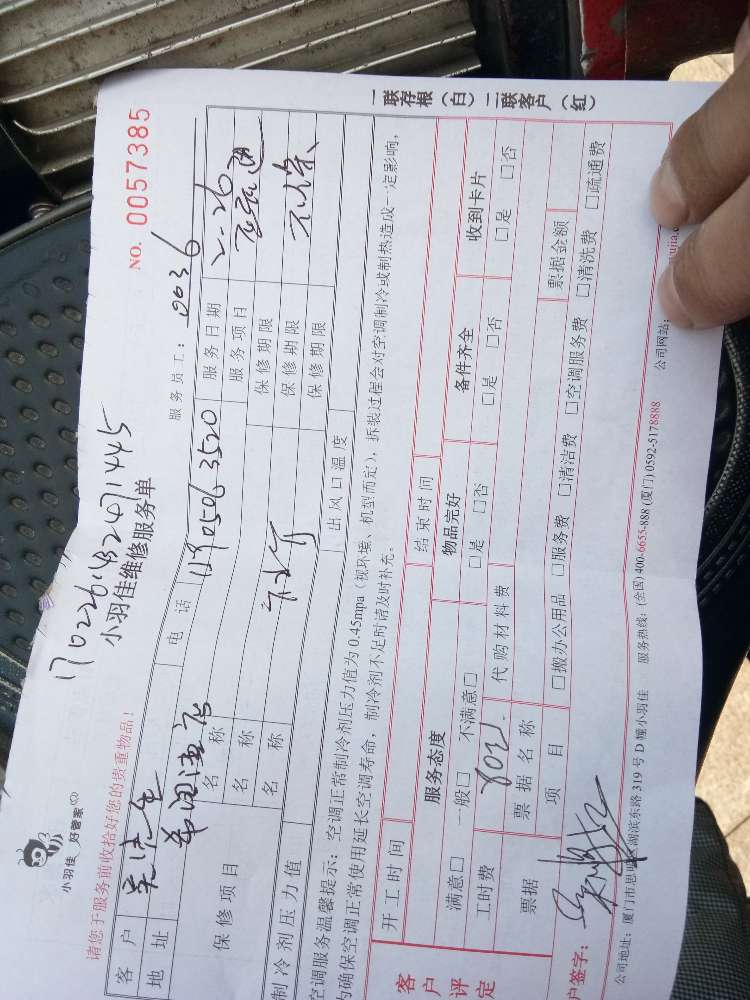 小羽佳 好管家
NO. 0057385
170226
小羽佳维修服务单
请您于服务前收拾好您的贵重物品！
服务员工： 0036
客户 吴先生 电话 服务日期 2.26
地址 服务项目
保修项目 名称 保修期限
名称 保修期限
名称 保修期限
制冷剂压力值 出风口温度
空调服务温馨提示：空调正常制冷剂压力值为 0.45mpa（视环接、机型而定），拆装过程会对空调制冷或制热造成一定影响，
为确保空调正常使用延长空调寿命，制冷剂不足时请及时补充。
客户评定
开工时间 结束时间
服务态度 物品完好 备件齐全 收到卡片
满意□ 一般□ 不满意□ □是 □否 □是 □否 □是 □否
工时费 代购材料费
票据 票据名称 票据金额
项目 □搬办公用品 □服务费 □清洁费 □空调服务费 □清洗费 □疏通费
户签字：
公司地址：厦门市思明区湖滨东路 319 号 D 幢小羽佳 服务热线：(全国) 400-6655-888 (厦门) 0592-5178888 公司网站：
一联存根（白）二联客户（红）